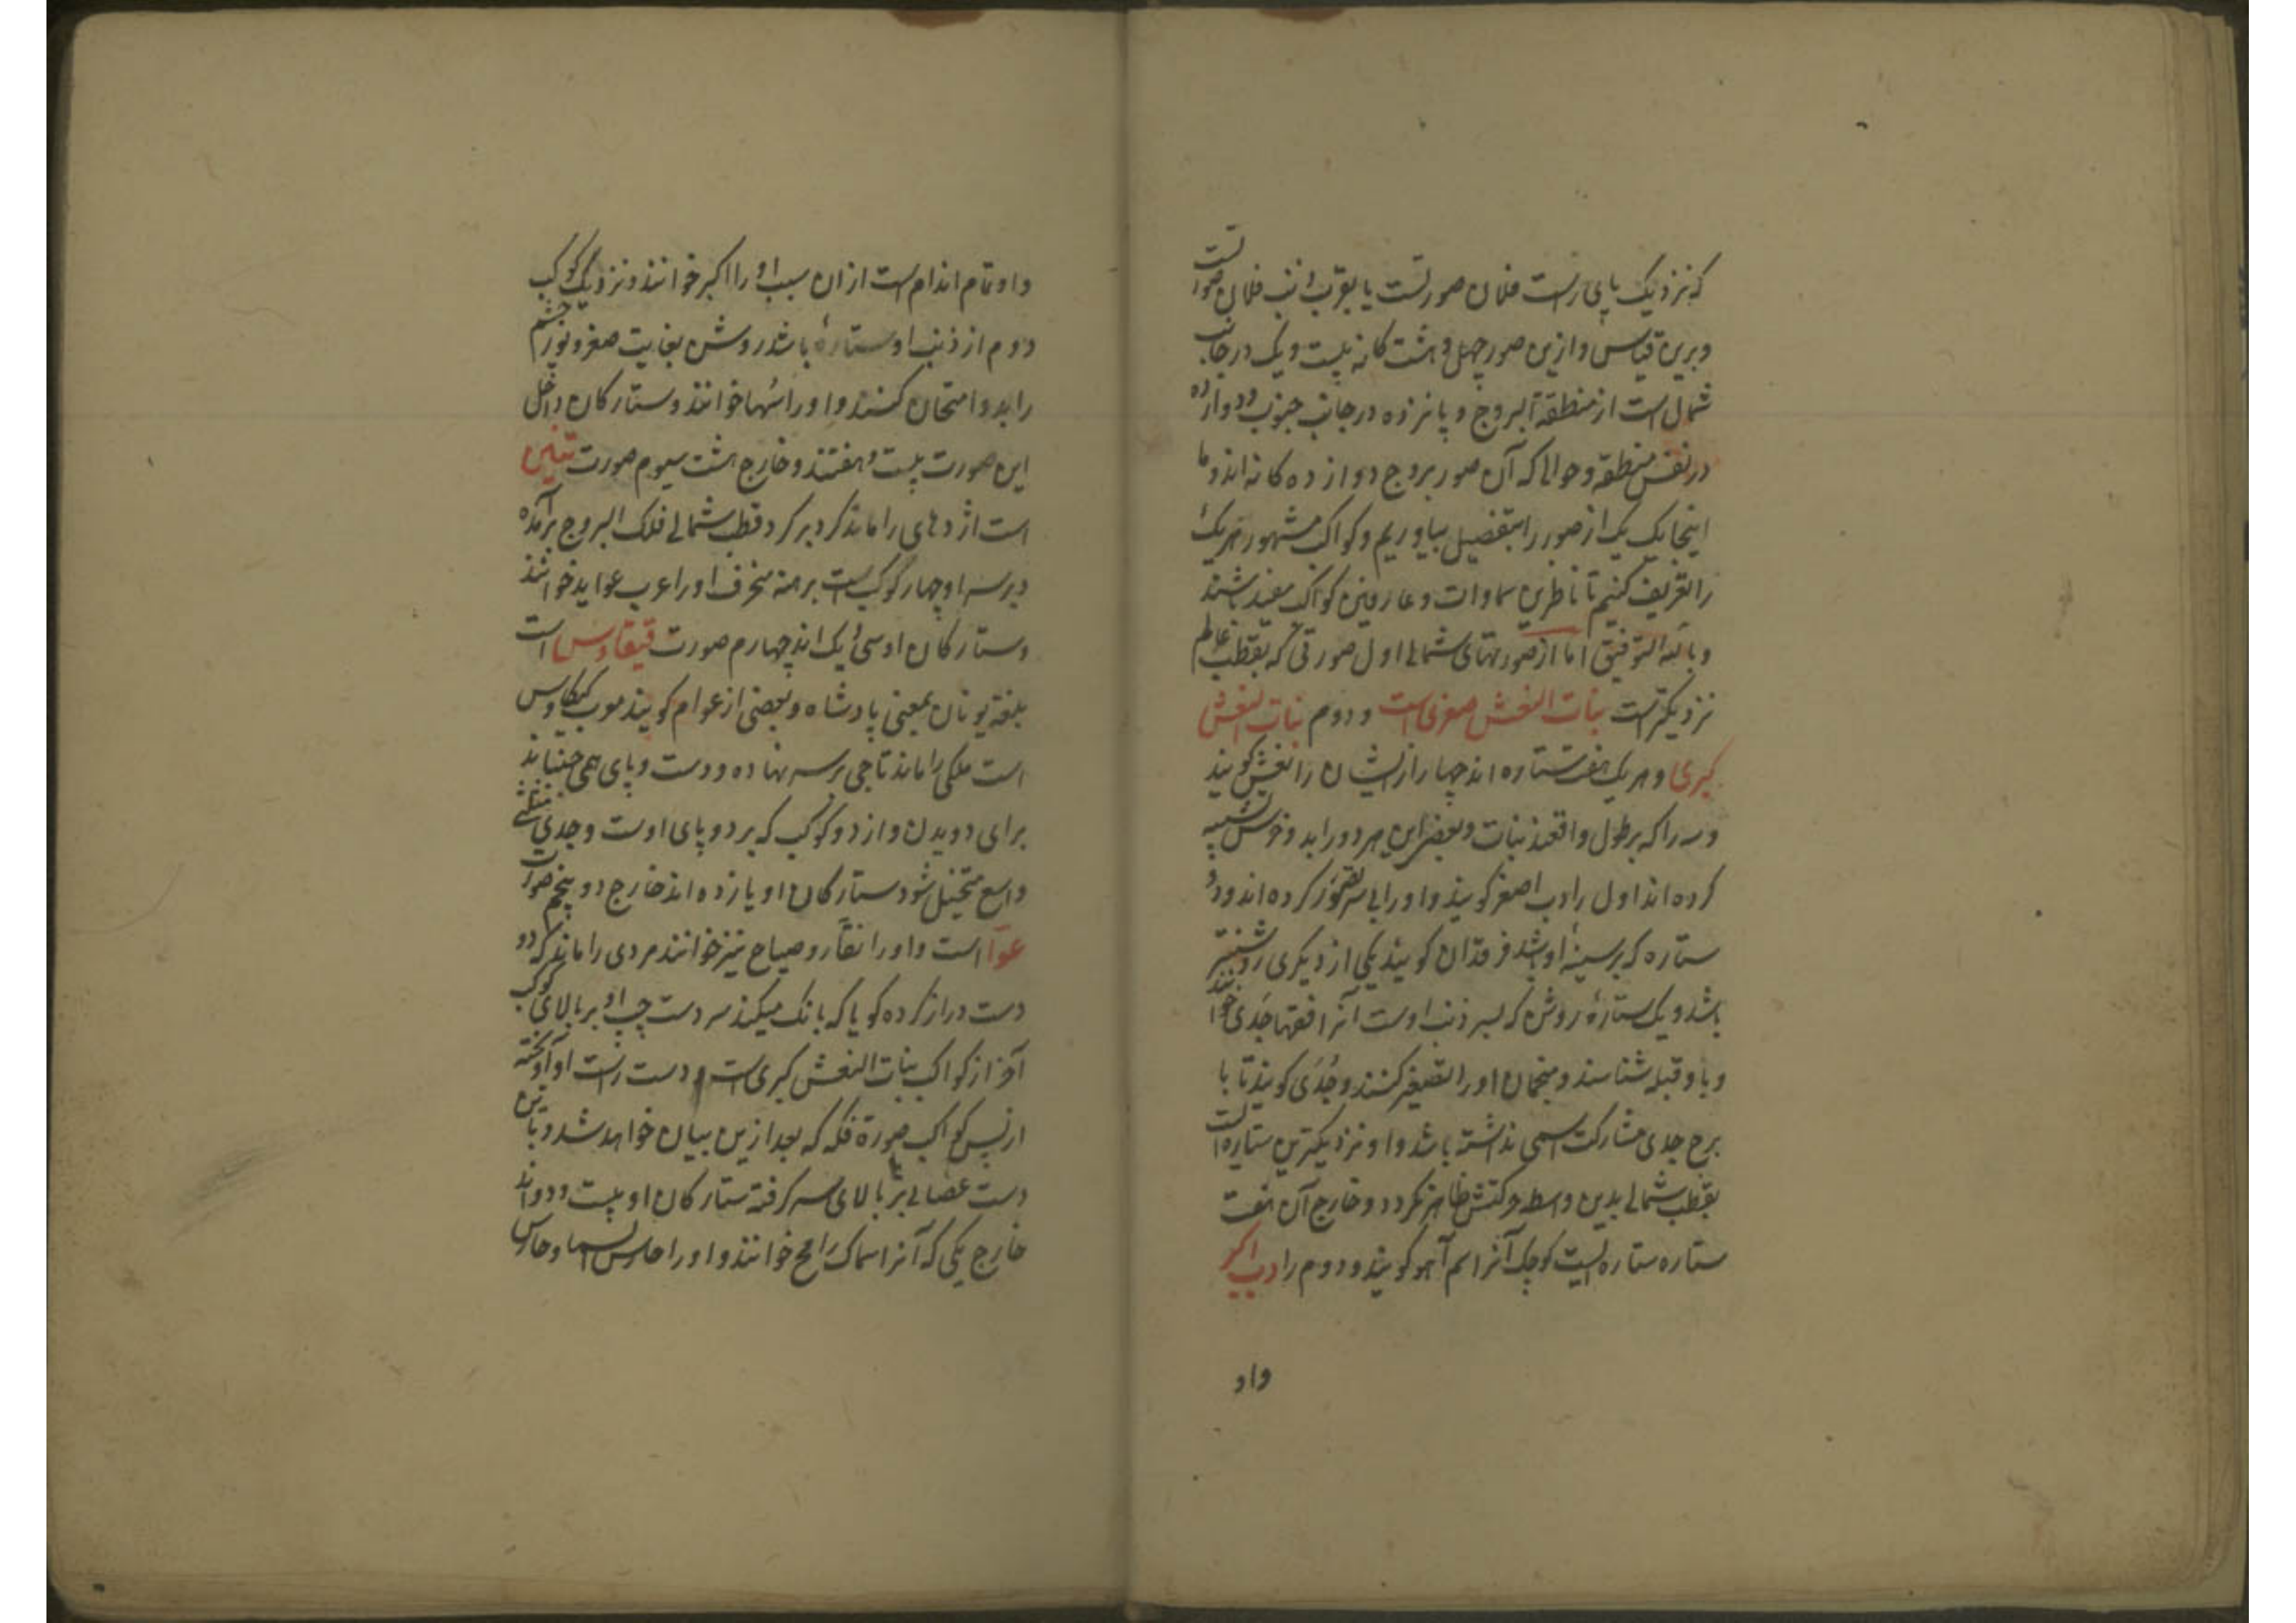 که نزدیک پای راست فلان صورتست یا بقرب ذنب فلان صورتست
وبرین قیاس وازین صور چهل و هشت کانه بیست ویک در جانب
شمال است از منطقة البروج و پانزده در جانب جنوب و دوازده
در نفس منطقه و حوالی که آن صور بروج دوازده کانه اند و ما
اینجا یک یک از صور را بتفصیل بیاوریم و کواکب مشهور هر یک
را تعریف کنیم تا ناظرین سماوات و عارفین کواکب مفید باشند
وبالله التوفیق اما از صورتهای شمالی اول صورتی که بقطب عالم
نزدیکتر است بنات النعش صغری است و دوم بنات النعش
کبری و هر یک هفت ستاره اند چهار از ایشان را نعش کویند
وسه را که بر طول واقعند بنات و بعضی این هر دو را بدو خرس تشبیه
کرده اند اول را دب اصغر کویند و او را بی سر تصور کرده اند و دو
ستاره که بر سینهٔ او باشد فرقدان کویند یکی از دیکری روشنتر
باشد و یک ستارهٔ روشن که بسر ذنب اوست آنرا فقها جدی خوانند
و باو قبله شناسند و منجمان او را تصغیر کنند و جُدَی کویند تا با
برج جدی مشارکت اسمی نداشته باشد و او نزدیکترین ستاره است
بقطب شمالی بدین واسطه حرکتش ظاهر نکردد و خارج آن هفت
ستاره ستاره ایست کوچک آنرا سم آهو کویند و دوم را دب اکبر
واو
واو تمام اندام است ازان سبب او را اکبر خوانند و نزدیک کوکب
دوم از ذنب او ستارهٔ باشد روشن بغایت صغر و نور چشم
را بدو امتحان کنند و او را سُها خوانند و ستارکان داخل
این صورت بیست و هفتند و خارج هشت سیوم صورت تنین
است اژدهای را ماند کرد بر کرد قطب شمالی فلک البروج برآمده
وبر سر او چهار کوکب است بر منحرف او را عرب عواید خوانند
وستارکان او سی و یک اند چهارم صورت قیقاوس است
بلغة یونان بمعنی پادشاه و بعضی از عوام کویند معرب کیکاوس
است ملکی را ماند تاجی بر سر نهاده و دست و پای همی جنباند
برای دویدن و از دو کوکب که بر دو پای اوست و جدی مثلثی
واسع متخیل شود ستارکان او یازده اند خارج دو پنجم صورت
عوّا است و او را نقّار و صیاح نیز خوانند مردی را ماند که دو
دست دراز کرده کویا که بانک میکند سر دست چپ او بر بالای کوکب
آخر از کواکب بنات النعش کبری است و دست راست او آویخته
از پس کواکب صورة فکه که بعد ازین بیان خواهد شد و باین
دست عصائی بر بالای سر کرفته ستارکان او بیست و دو اند
خارج یکی که آنرا سماک رامح خوانند و او را حارس السما و حارس